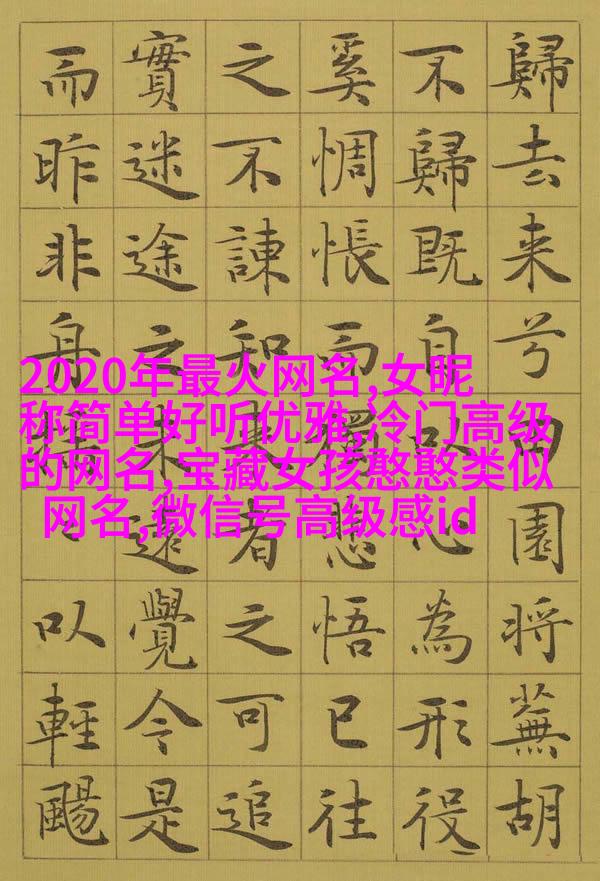 歸去来兮田園将蕪胡
不歸既自以心為形役
奚惆悵而悲悟已往
之不諫知者之可追
實迷途之未遠覺今是
而昨非舟以輕颺
2020年最火网名,女昵
称简单好听优雅,冷门高级
的网名,宝藏女孩憨憨类似
网名,微信号高级感id